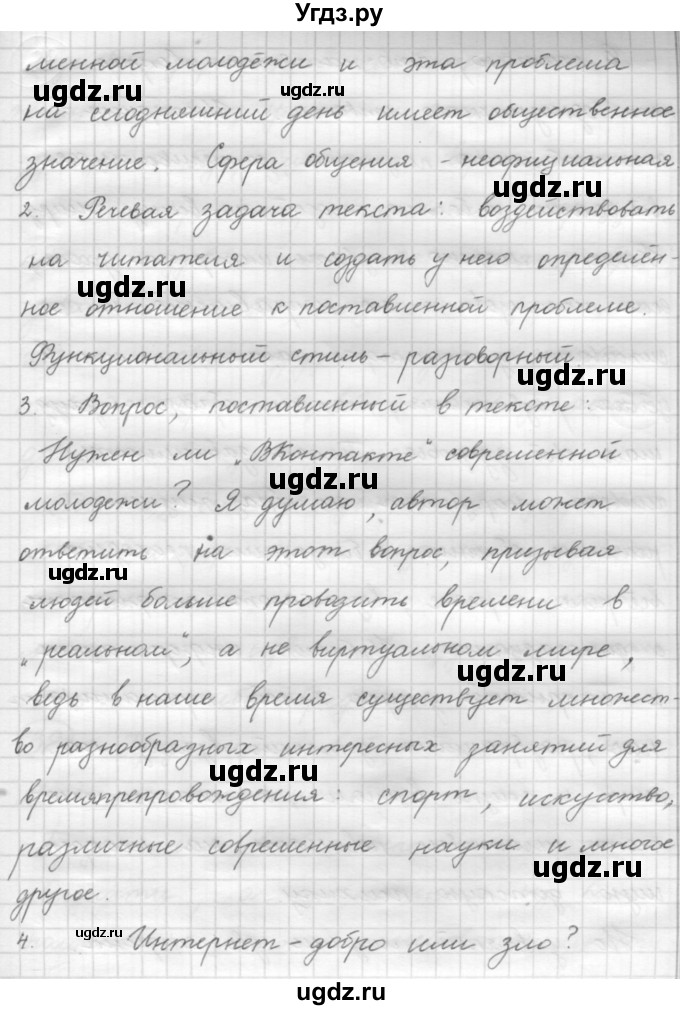 Угдз.ру
менной молодёжи и эта проблема
ugdz.ru ugdz.ru
на сегодняшний день имеет общественное
значение. Сфера общения - неофициальная
ugdz.ru
2. Речевая задача текста: воздействовать
на читателя и создать у него определён-
ugdz.ru
ное отношение к поставленной проблеме.
Функциональный стиль - разговорный
ugdz.ru
3. Вопрос, поставленный в тексте:
Нужен ли „ВКонтакте" современной
ugdz.ru
молодежи? Я думаю, автор может
ответить на этот вопрос, призывая
ugdz.ru
людей больше проводить времени в
„реальном", а не виртуальном мире,
ugdz.ru
ведь в наше время существует множест-
во разнообразных интересных занятий для
ugdz.ru
времяпрепровождения: спорт, искусство,
различные современные науки и многое
ugdz.ru
другое.
4. Интернет - добро или зло?
ugdz.ru
ugdz.ru